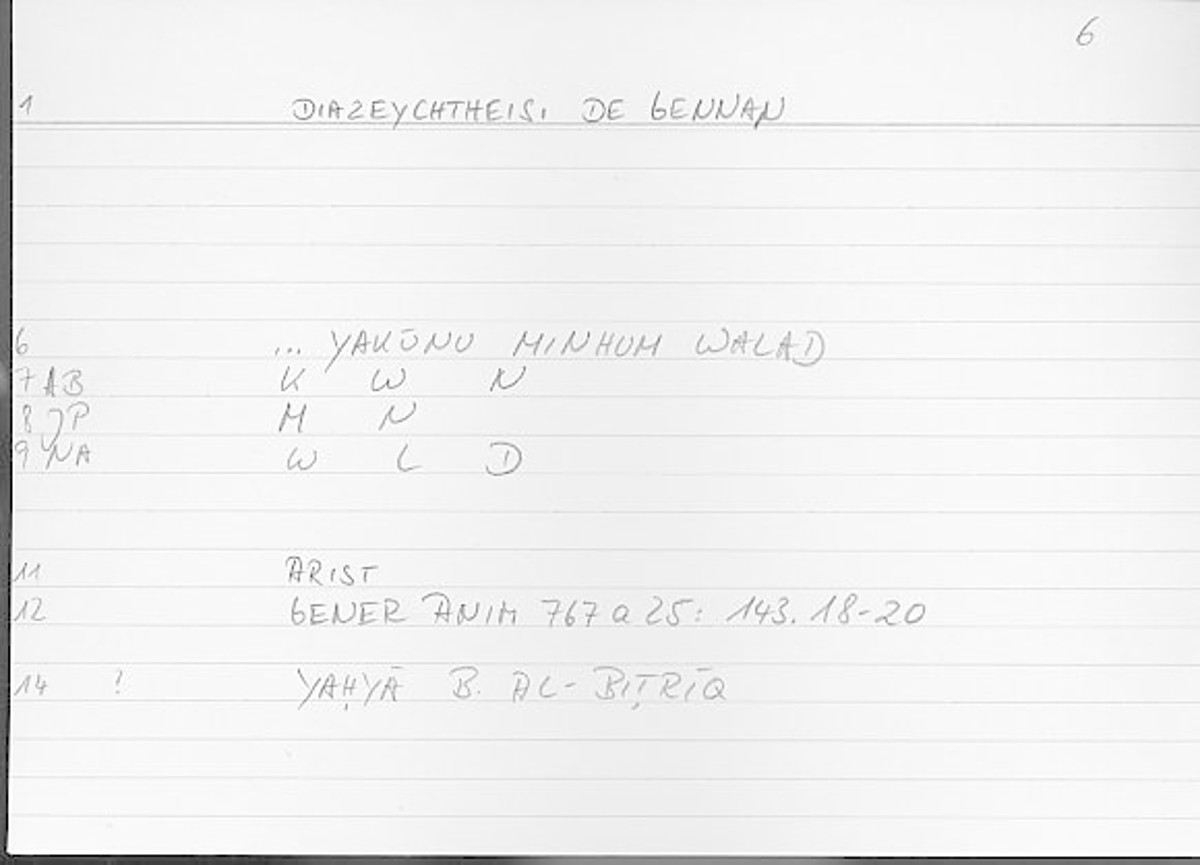 6
1 DIAZEYCHTHEISI DE GENNAN
6 ... YAKŪNU MINHUM WALAD
7 AB K W N
8 JP M N
9 NA W L D
11 ARIST
12 GENER ANIM 767 a 25: 143. 18-20
14 ! YAḤYĀ B. AL-BIṬRĪQ